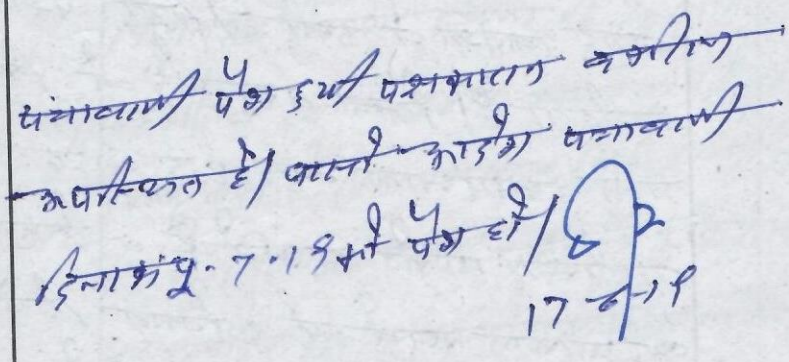 पत्रावली पेश हुयी पक्षकारान वकील
उपस्थित है। वास्ते आदेश पत्रावली
दिनांक 7.19 को पेश हो।
17-6-19